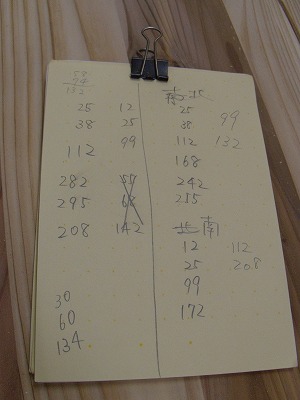 58
74
132
25 12
38 25
112 99
282 55
295 68
208 142
30
60
134
南北
25
38 99
112 132
168
242
255
北南
12 112
25 208
99
172